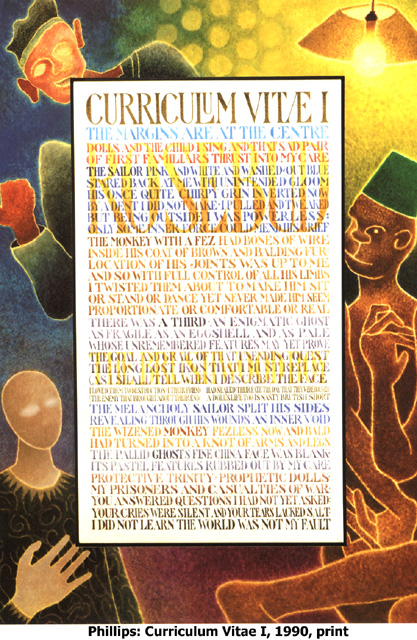 CURRICULUM VITÆ I
THE MARGINS ARE AT THE CENTRE
DOLLS AND THE CHILD KING AND THAT SAD PAIR
OF FIRST FAMILIARS THRUST INTO MY CARE
THE SAILOR PINK AND WHITE AND WASHED-OUT BLUE
STARED BACK AT ME WITH UNINTENDED GLOOM
HIS ONCE QUITE CHIRPY GRIN INVERTED NOW
BY A DENT I DID NOT MAKE. I PULLED AND TWEAKED
BUT BEING OUTSIDE I WAS POWERLESS:
ONLY SOME INNER FORCE COULD MEND HIS GRIEF
THE MONKEY WITH A FEZ HAD BONES OF WIRE
INSIDE HIS COAT OF BROWN AND BALDING FUR
LOCATION OF HIS JOINTS WAS UP TO ME
AND SO WITH FULL CONTROL OF ALL HIS LIMBS
I TWISTED THEM ABOUT TO MAKE HIM SIT
OR STAND OR DANCE YET NEVER MADE HIM SEEM
PROPORTIONATE OR COMFORTABLE OR REAL
THERE WAS A THIRD: AN ENIGMATIC GHOST
AS FRAGILE AS AN EGGSHELL AND AS PALE
WHOSE UNREMEMBERED FEATURES MAY YET PROVE
THE GOAL AND GRAIL OF THAT UNENDING QUEST
THE LONG LOST IKON THAT I MUST REPLACE
AS I SHALL TELL WHEN I DESCRIBE THE FACE
I LOVED THEM TO DESTRUCTION HAD SEALED THEIR FATE THE DAY THAT THEY WERE BOUGHT
THE ENEMY THAT BROUGHT ABOUT THEIR END A DOLL'S LIFE TOO IS NASTY BRUTISH SHORT
THE MELANCHOLY SAILOR SPLIT HIS SIDES
REVEALING THROUGH HIS WOUNDS AN INNER VOID
THE WIZENED MONKEY FEZLESS NOW AND BALD
HAD TURNED INTO A KNOT OF ARMS AND LEGS
THE PALLID GHOST'S FINE CHINA FACE WAS BLANK
ITS PASTEL FEATURES RUBBED OUT BY MY CARE
PROTECTIVE TRINITY: PROPHETIC DOLLS:
MY PRISONERS AND CASUALTIES OF WAR:
YOU ANSWERED QUESTIONS I HAD NOT YET ASKED:
YOUR CRIES WERE SILENT AND YOUR TEARS LACKED SALT
I DID NOT LEARN THE WORLD WAS NOT MY FAULT
Phillips: Curriculum Vitae I, 1990, print